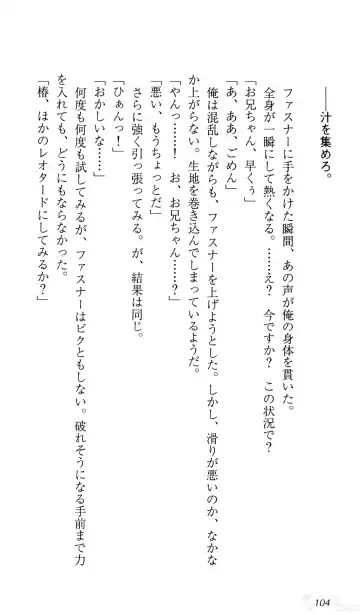 ――汁を集めろ。
ファスナーに手をかけた瞬間、あの声が俺の身体を貫いた。
全身が一瞬にして熱くなる。……え？　今ですか？　この状況で？
「お兄ちゃん、早くぅ」
「あ、ああ、ごめん」
俺は混乱しながらも、ファスナーを上げようとした。しかし、滑りが悪いのか、なかな
か上がらない。生地を巻き込んでしまっているようだ。
「やんっ……！　お、お兄ちゃん……？」
「悪い、もうちょっとだ」
さらに強く引っ張ってみる。が、結果は同じ。
「ひぁんっ！」
「おかしいな……」
何度も何度も試してみるが、ファスナーはビクともしない。破れそうになる手前まで力
を入れても、どうにもならなかった。
「椿、ほかのレオタードにしてみるか？」
104